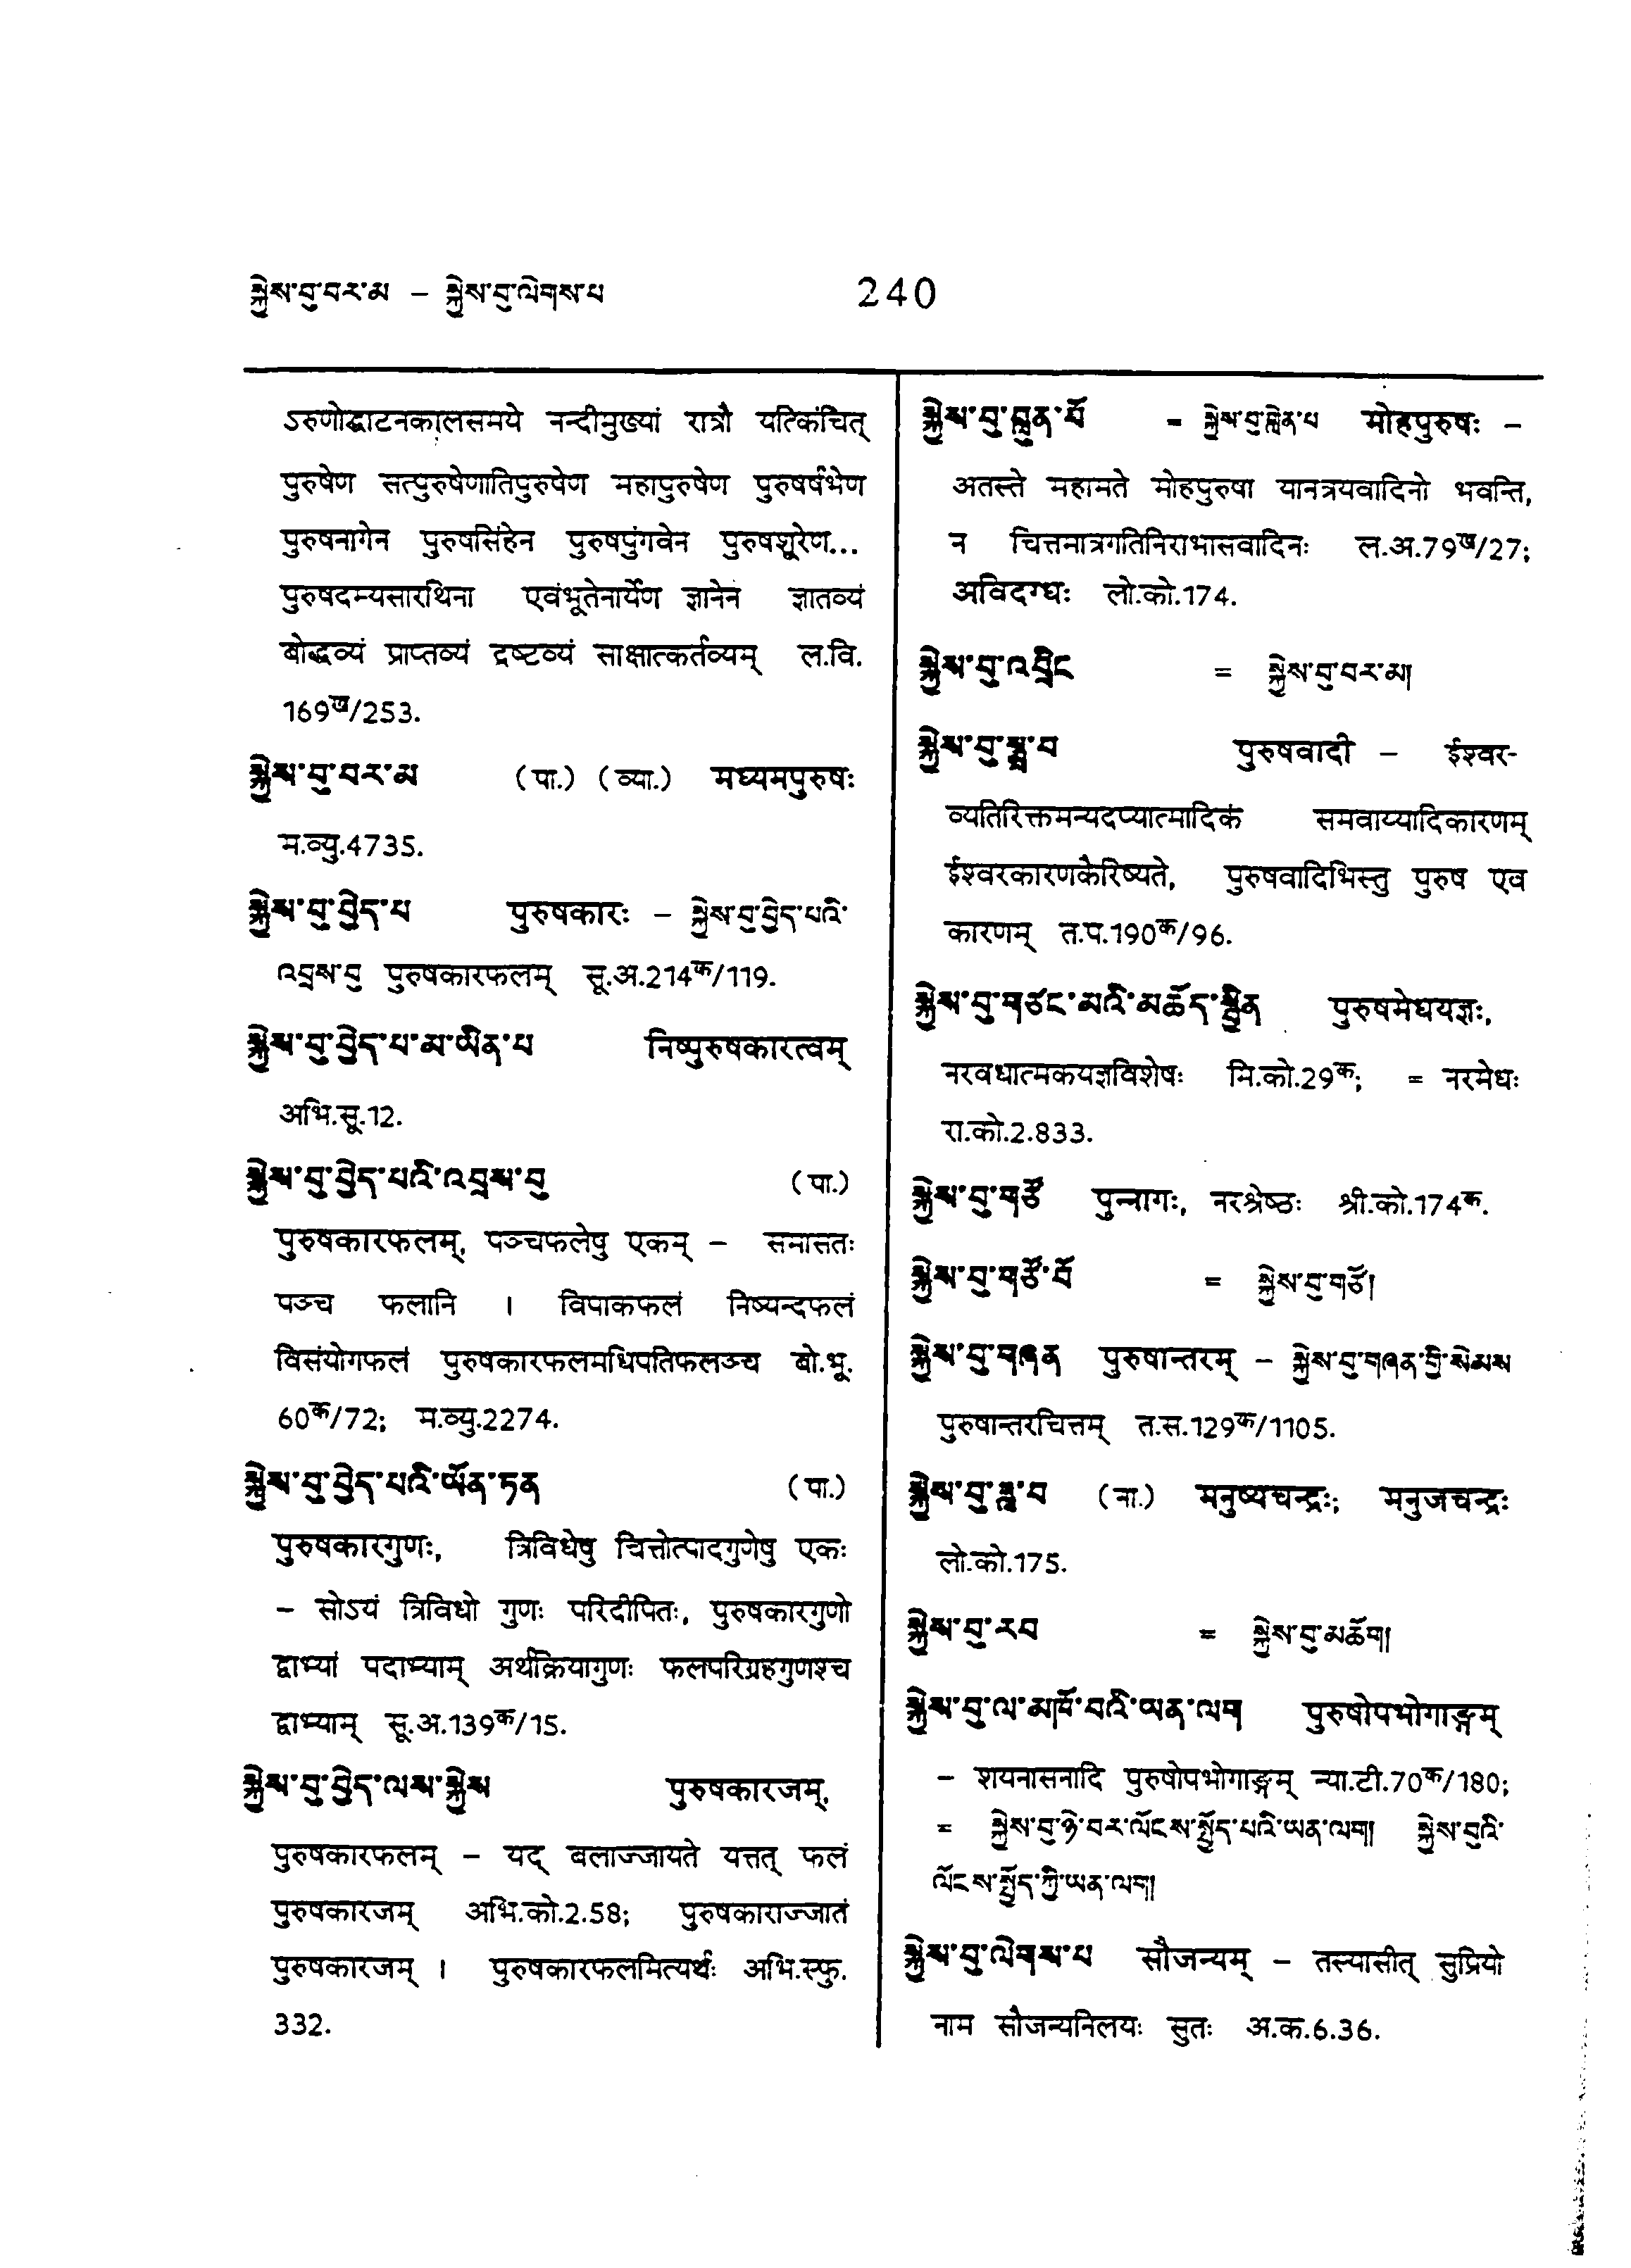 སྐྱེས་བུ་བར་མ – སྐྱེས་བུ་ལེགས་པ
240
ऽरुणोद्घाटनकालसमये नन्दीमुख्यां रात्रौ यत्किंचित्
पुरुषेण सत्पुरुषेणातिपुरुषेण महापुरुषेण पुरुषर्षभेण
पुरुषनागेन पुरुषसिंहेन पुरुषपुंगवेन पुरुषशूरेण...
पुरुषदम्यसारथिना एवंभूतेनार्येण ज्ञानेन ज्ञातव्यं
बोद्धव्यं प्राप्तव्यं द्रष्टव्यं साक्षात्कर्तव्यम् ल.वि.
169ख/253.
སྐྱེས་བུ་བར་མ (पा.) (व्या.) मध्यमपुरुषः
म.व्यु.4735.
སྐྱེས་བུ་བྱེད་པ पुरुषकारः – སྐྱེས་བུ་བྱེད་པའི་
འབྲས་བུ पुरुषकारफलम् सू.अ.214क/119.
སྐྱེས་བུ་བྱེད་པ་མ་ཡིན་པ निष्पुरुषकारत्वम्
अभि.सू.12.
སྐྱེས་བུ་བྱེད་པའི་འབྲས་བུ (पा.)
पुरुषकारफलम्, पञ्चफलेषु एकम् – समासतः
पञ्च फलानि । विपाकफलं निष्यन्दफलं
विसंयोगफलं पुरुषकारफलमधिपतिफलञ्च बो.भू.
60क/72; म.व्यु.2274.
སྐྱེས་བུ་བྱེད་པའི་ཡོན་ཏན (पा.)
पुरुषकारगुणः, त्रिविधेषु चित्तोत्पादगुणेषु एकः
– सोऽयं त्रिविधो गुणः परिदीपितः, पुरुषकारगुणो
द्वाभ्यां पदाभ्याम् अर्थक्रियागुणः फलपरिग्रहगुणश्च
द्वाभ्याम् सू.अ.139क/15.
སྐྱེས་བུ་བྱེད་ལས་སྐྱེས पुरुषकारजम्,
पुरुषकारफलम् – यद् बलाज्जायते यत्तत् फलं
पुरुषकारजम् अभि.को.2.58; पुरुषकाराज्जातं
पुरुषकारजम् । पुरुषकारफलमित्यर्थः अभि.स्फु.
332.
སྐྱེས་བུ་བླུན་པོ = སྐྱེས་བུ་གླེན་པ मोहपुरुषः –
अतस्ते महामते मोहपुरुषा यानत्रयवादिनो भवन्ति,
न चित्तमात्रगतिनिराभासवादिनः ल.अ.79ख/27;
अविदग्धः लो.को.174.
སྐྱེས་བུ་འབྲིང = སྐྱེས་བུ་བར་མ།
སྐྱེས་བུ་སྨྲ་བ पुरुषवादी – ईश्वर-
व्यतिरिक्तमन्यदप्यात्मादिकं समवाय्यादिकारणम्
ईश्वरकारणकैरिष्यते, पुरुषवादिभिस्तु पुरुष एव
कारणम् त.प.190क/96.
སྐྱེས་བུ་གཙང་མའི་མཆོད་སྦྱིན पुरुषमेधयज्ञः,
नरवधात्मकयज्ञविशेषः मि.को.29क; = नरमेधः
रा.को.2.833.
སྐྱེས་བུ་གཙོ पुन्नागः, नरश्रेष्ठः श्री.को.174क.
སྐྱེས་བུ་གཙོ་བོ = སྐྱེས་བུ་གཙོ།
སྐྱེས་བུ་གཞན पुरुषान्तरम् – སྐྱེས་བུ་གཞན་གྱི་སེམས
पुरुषान्तरचित्तम् त.स.129क/1105.
སྐྱེས་བུ་ཟླ་བ (ना.) मनुष्यचन्द्रः; मनुजचन्द्रः
लो.को.175.
སྐྱེས་བུ་རབ = སྐྱེས་བུ་མཆོག།
སྐྱེས་བུ་ལ་མཁོ་བའི་ཡན་ལག पुरुषोपभोगाङ्गम्
– शयनासनादि पुरुषोपभोगाङ्गम् न्या.टी.70क/180;
= སྐྱེས་བུ་ཉེ་བར་ལོངས་སྤྱོད་པའི་ཡན་ལག། སྐྱེས་བུའི་
ལོངས་སྤྱོད་ཀྱི་ཡན་ལག།
སྐྱེས་བུ་ལེགས་པ सौजन्यम् – तस्यासीत् सुप्रियो
नाम सौजन्यनिलयः सुतः अ.क.6.36.